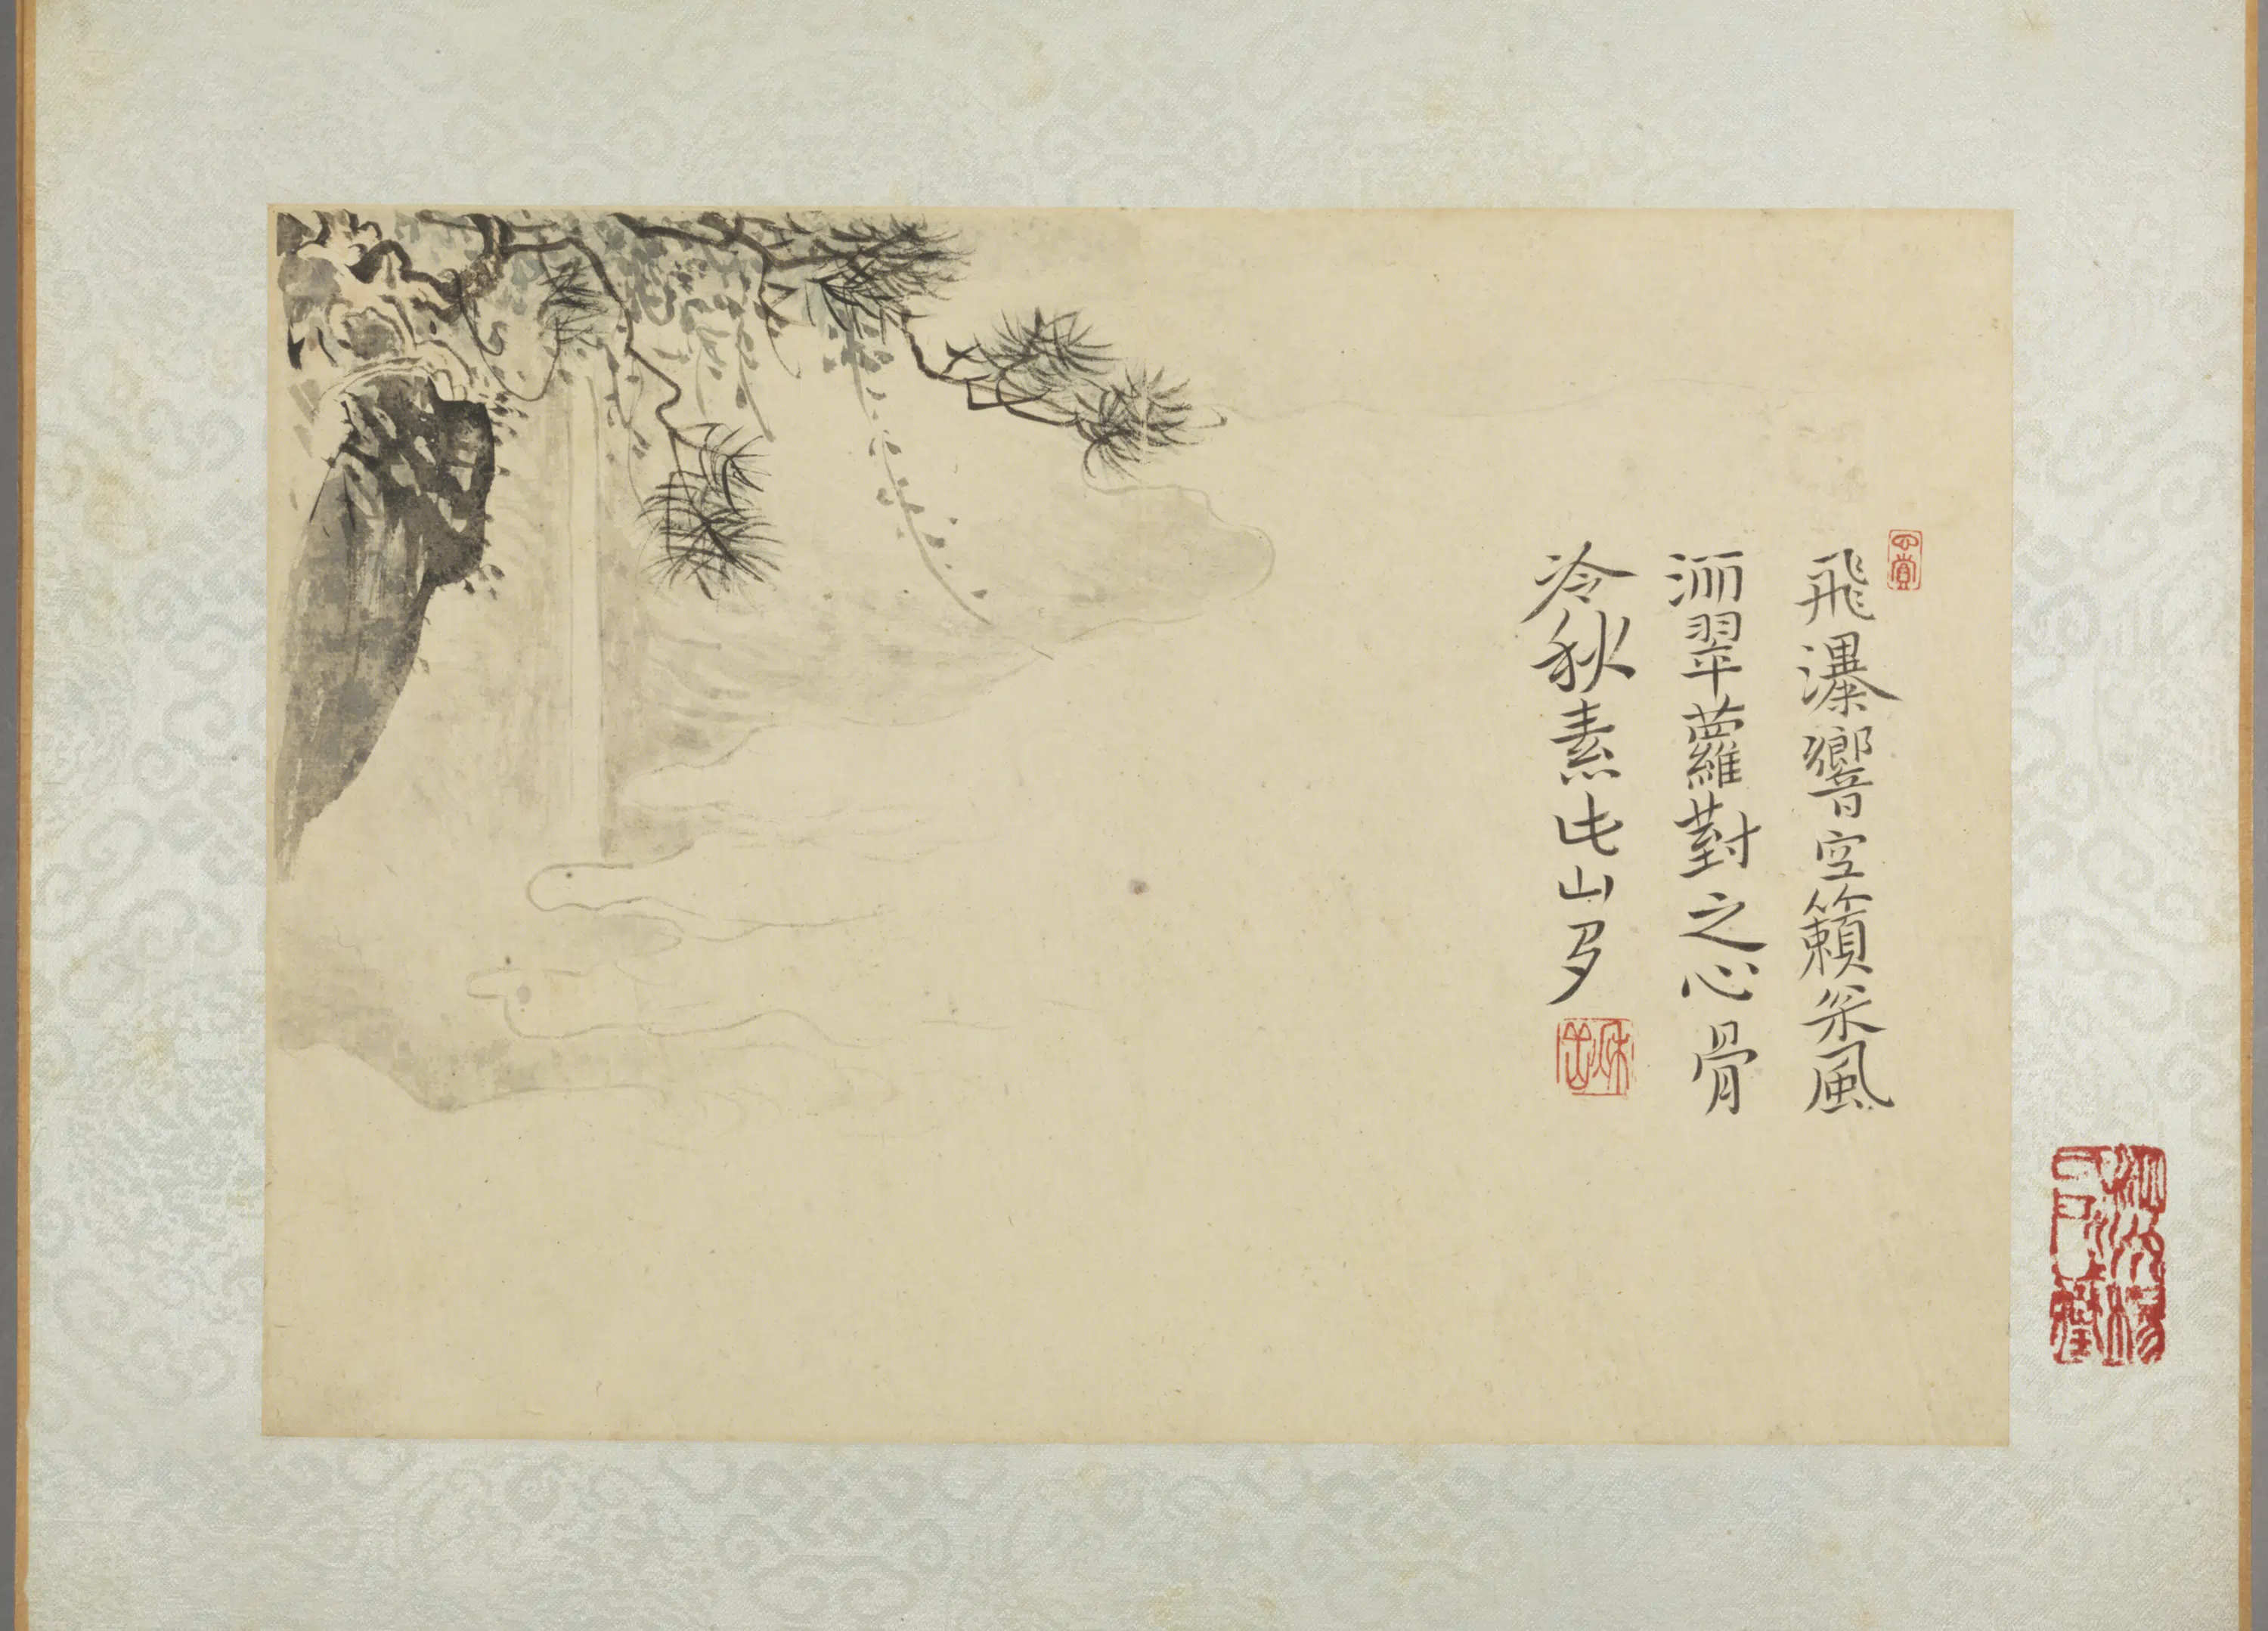 飛瀑響空籟枀風
灑翠蘿對之心骨
冷秋素此山多